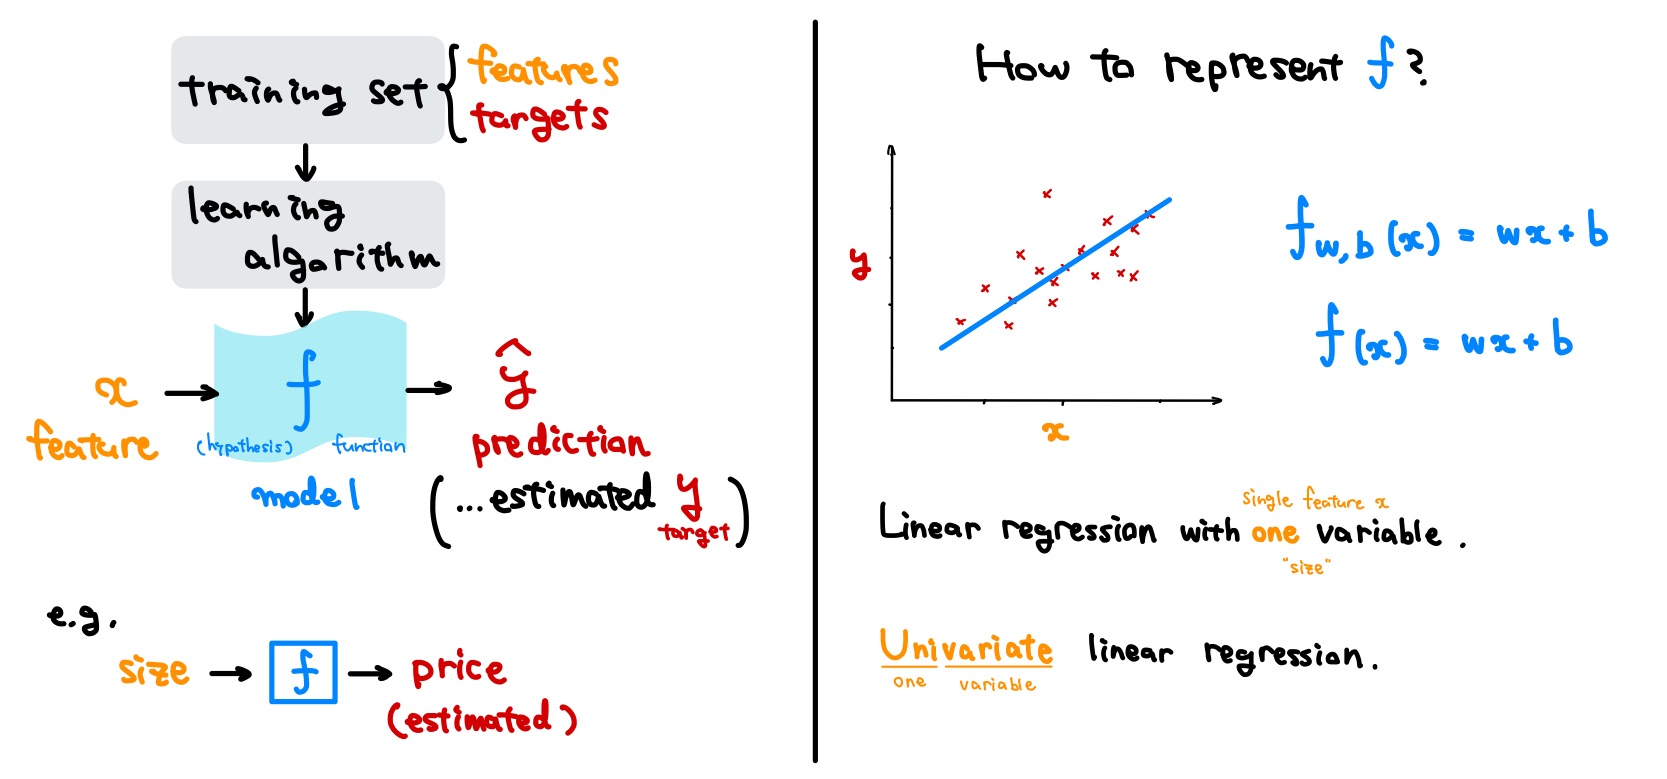 training set { features
targets
learning
algorithm
f
(hypothesis) function
model
x
feature
ŷ
prediction
(...estimated y)
target
e.g.
size → f → price
(estimated)
How to represent f?
y
x
f w,b (x) = wx + b
f(x) = wx + b
single feature x
Linear regression with one variable.
"size"
Univariate linear regression.
one variable